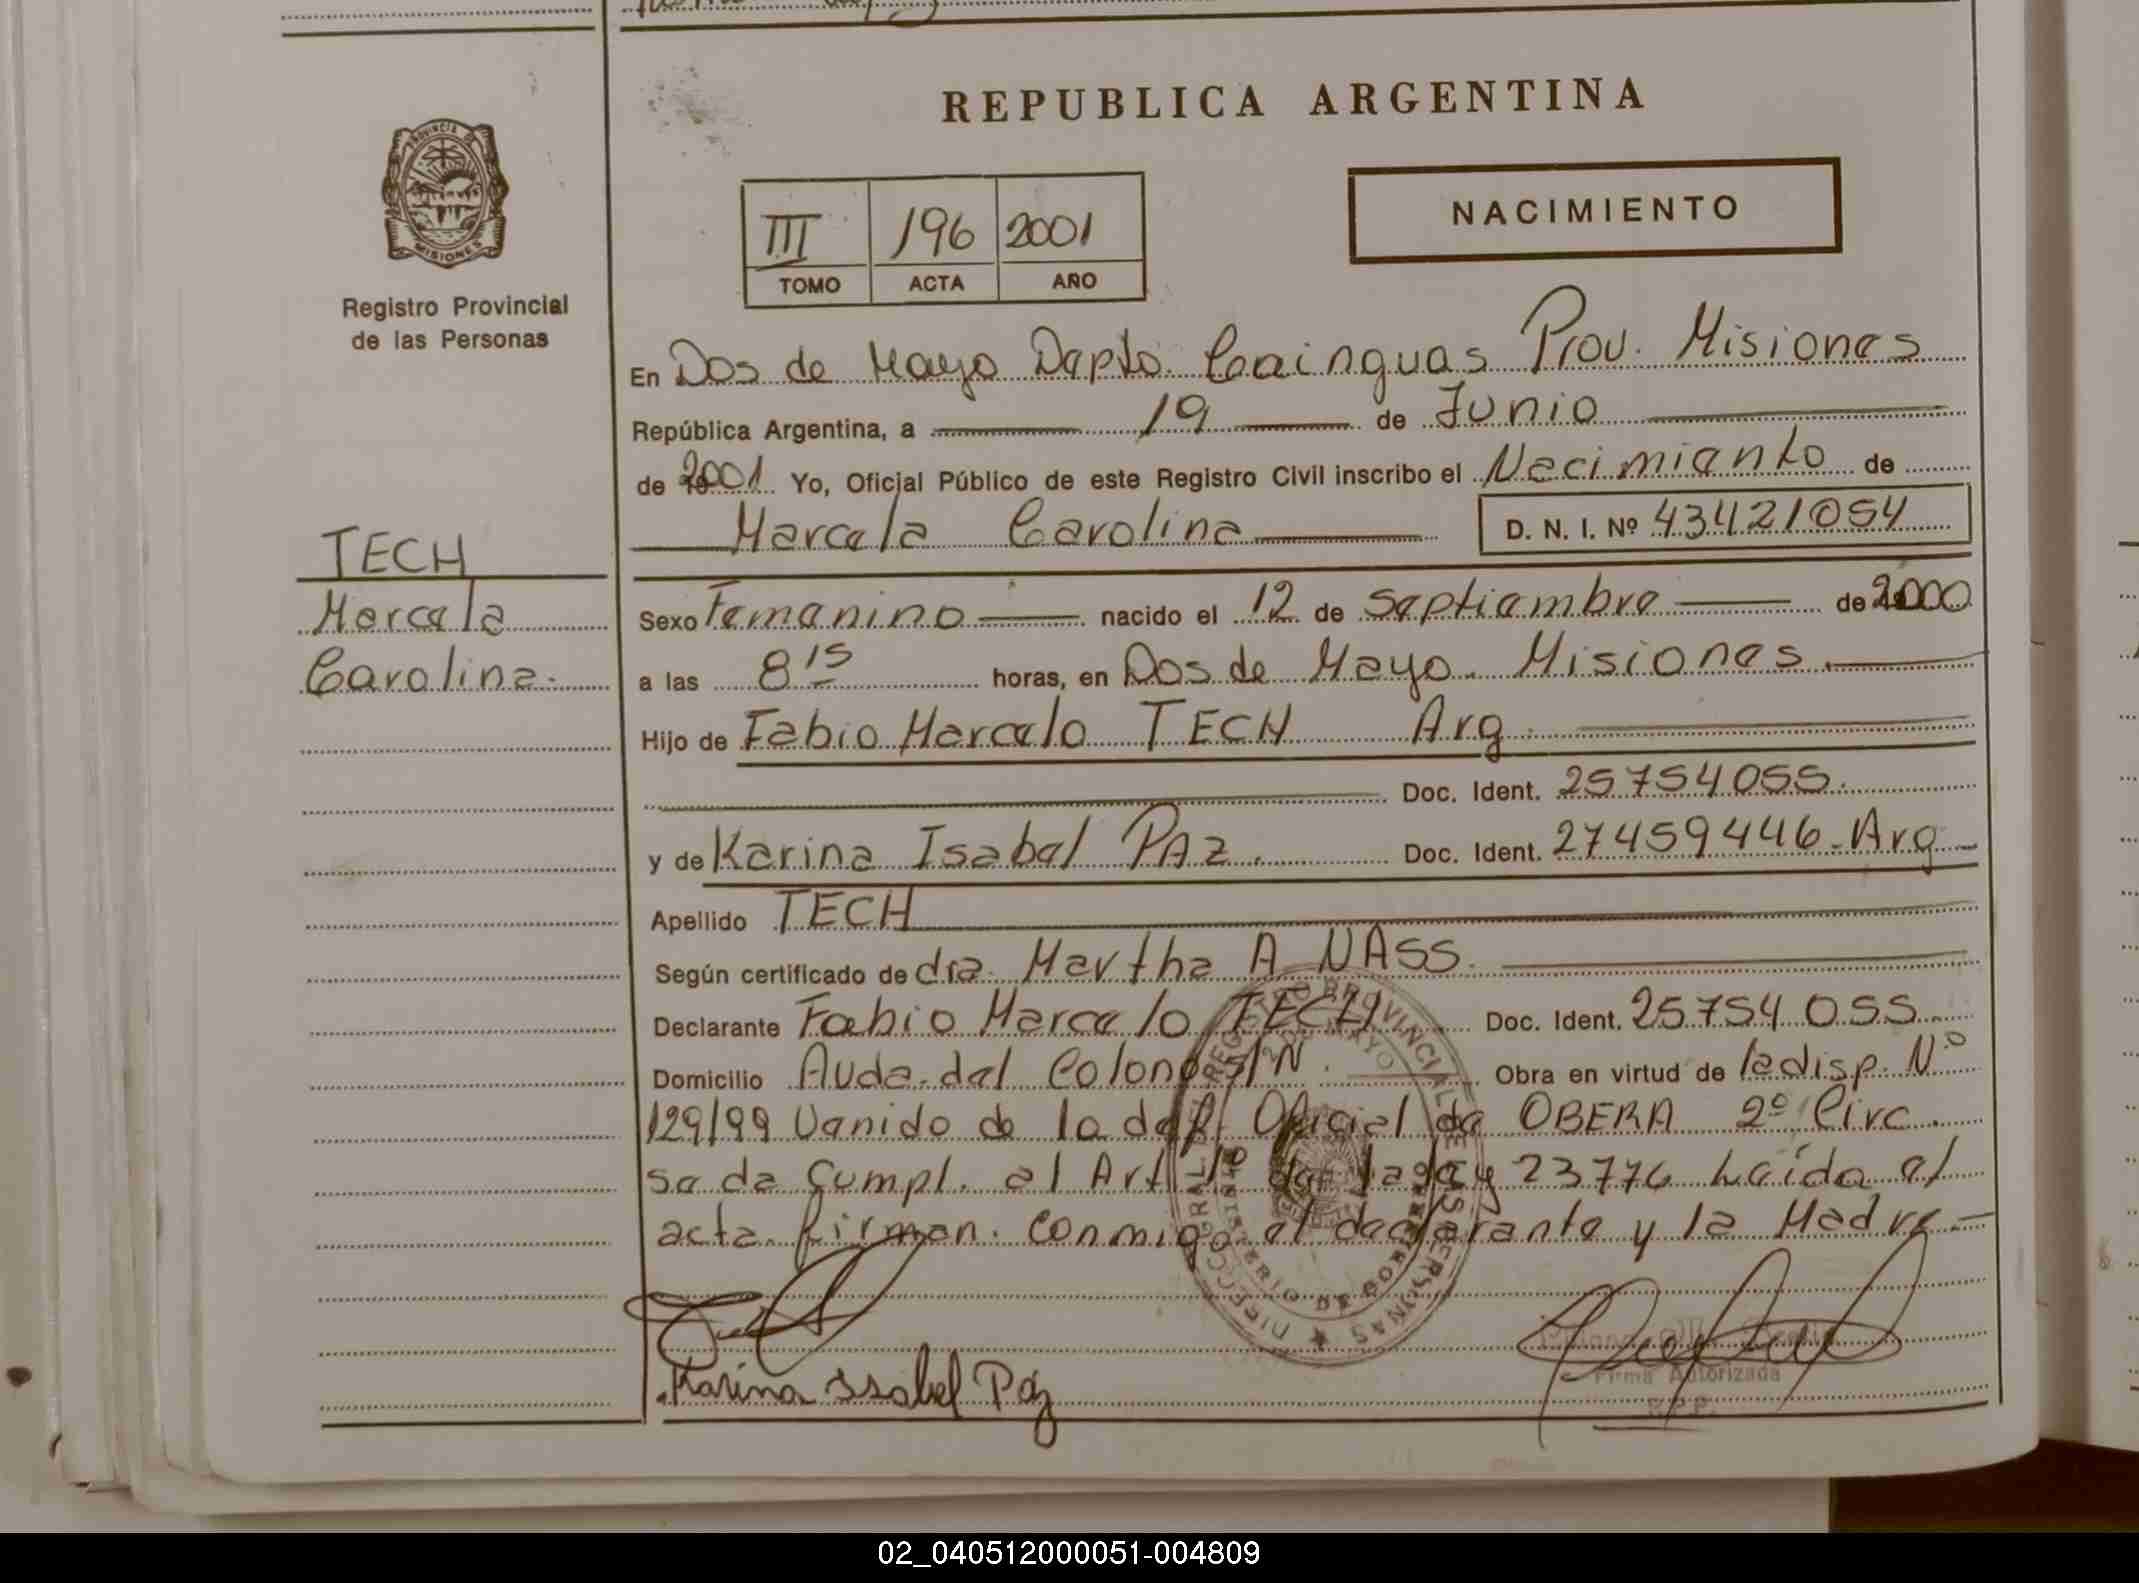 REPUBLICA ARGENTINA
PROVINCIA DE
MISIONES
Registro Provincial
de las Personas
III 196 2001
TOMO ACTA AÑO
NACIMIENTO
En Dos de Mayo Dapto. Cainguas Prov. Misiones
República Argentina, a 19 de Junio
de 2001 Yo, Oficial Público de este Registro Civil inscribo el Nacimianto de
Marcela Carolina D. N. I. Nº 43421054
TECH
Marcela
Carolina.
Sexo Femanino nacido el 12 de Septiambre de 2000
a las 8 15 horas, en Dos de Mayo. Misiones.
Hijo de Fabio Marcelo TECH Arg.
Doc. Ident. 25754055.
y de Karina Isabel PAZ. Doc. Ident. 27459446.Arg
Apellido TECH
Según certificado de dra. Martha A NASS.
Declarante Fabio Marcelo TECH Doc. Ident. 25754055.
Domicilio Avda. del Colono S/N. Obra en virtud de la disp. Nº
129/99 Vanido de la del. Oficial de OBERA 2º Circ.
se da Cumpl. al Art 1º de la ley 23776 Leída el
acta firman conmigo el declarante y la Madre
DIRECCION GRAL. DEL REGISTRO PROVINCIAL DE LAS PERSONAS
2 DE MAYO
MINISTERIO DE GOBIERNO
Karina Isabel Paz
Firma Autorizada
R.P.P.
02_040512000051-004809